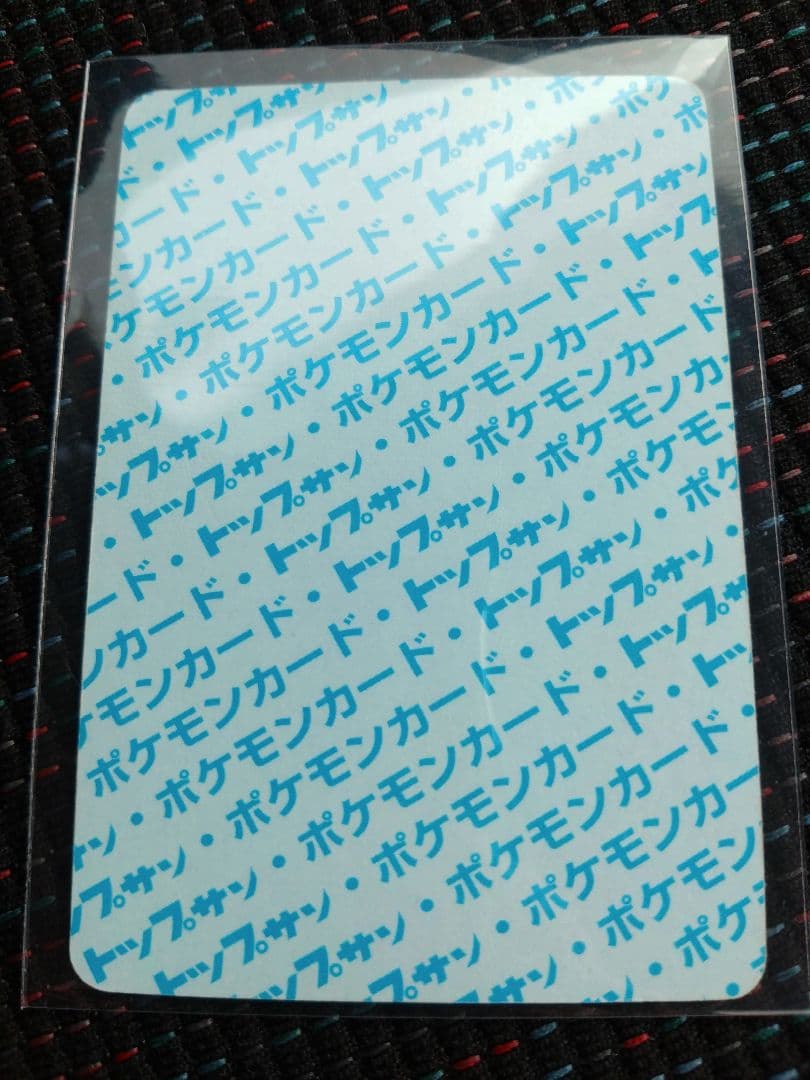 トップ
ド・トップサン・
カード・トップサン・
ンカード・トップサン・ポ
ケモンカード・トップサン・ポ
・ポケモンカード・トップサン・ポケ
サン・ポケモンカード・トップサン・ポ
ップサン・ポケモンカード・トップサン
・トップサン・ポケモンカード・トップ
ード・トップサン・ポケモンカード・ト
ンカード・トップサン・ポケモンカード
ケモンカード・トップサン・ポケモンカー
ポケモンカード・トップサン・ポケモン
サン・ポケモンカード・トップサン・ポケ
プサン・ポケモンカード・トップサン・
トップサン・ポケモンカード・トップ
トップサン・ポケモンカード・ト
トップサン・ポケモンカード・
プサン・ポケモンカー
サン・ポケモン
・ポケ